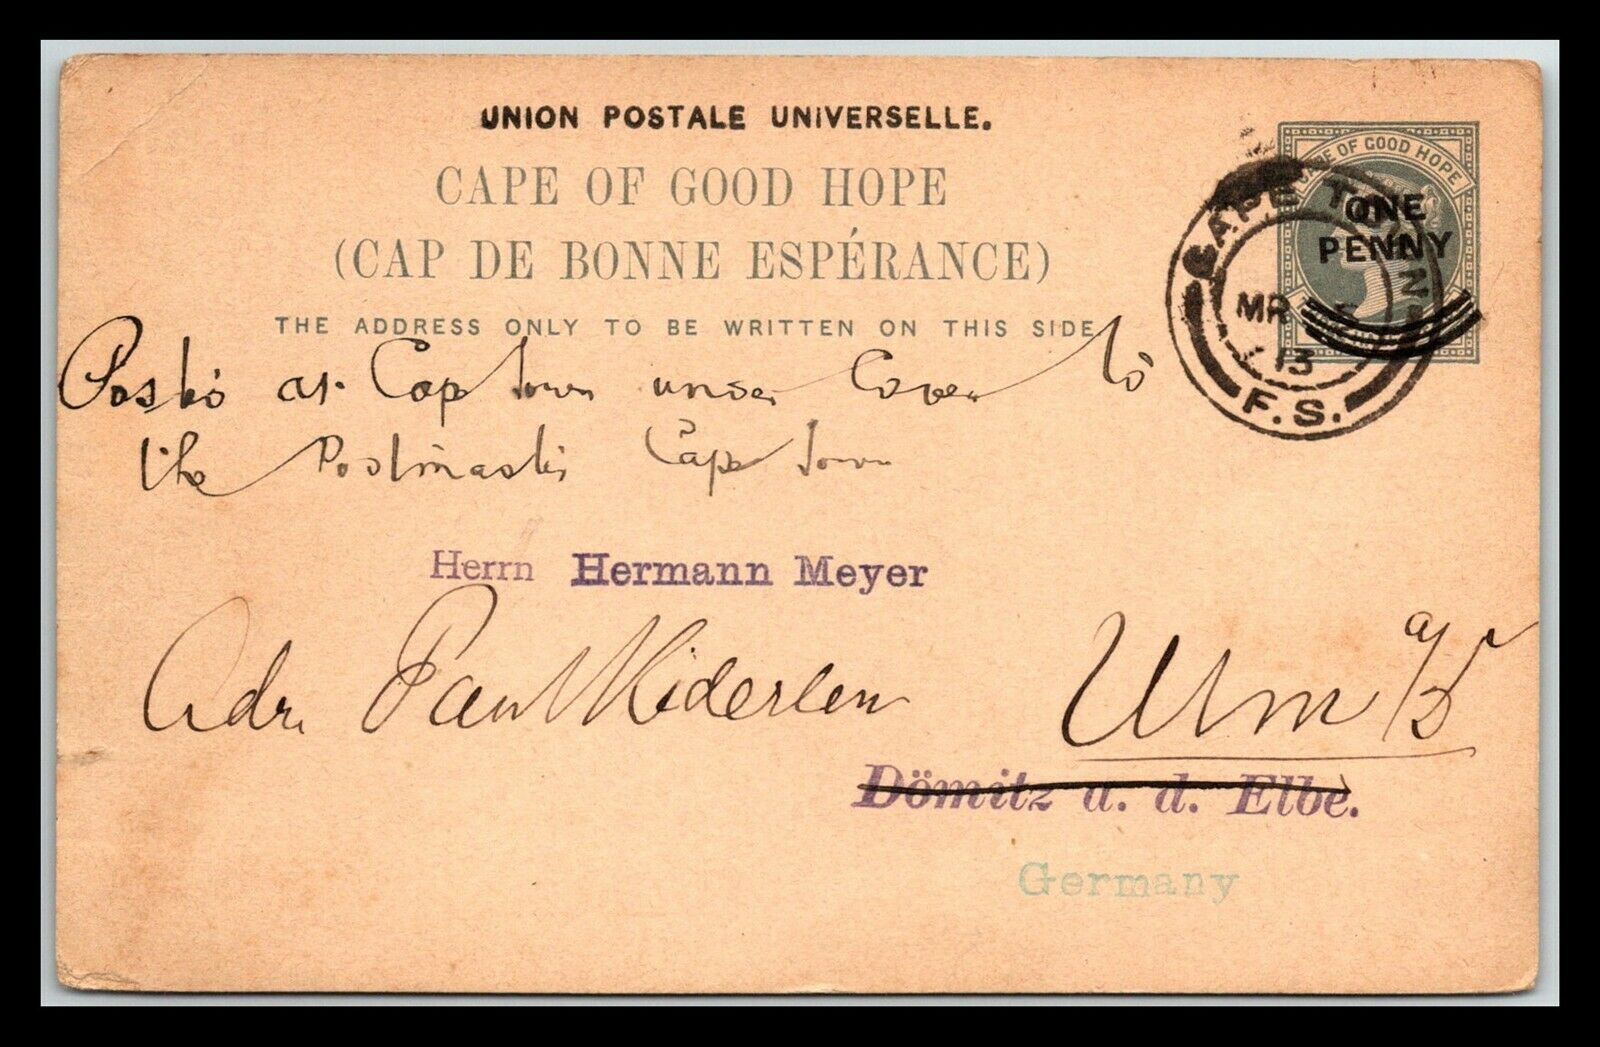 UNION POSTALE UNIVERSELLE.
CAPE OF GOOD HOPE
(CAP DE BONNE ESPÉRANCE)
THE ADDRESS ONLY TO BE WRITTEN ON THIS SIDE
CAPE OF GOOD HOPE
ONE
PENNY
CAPE TOWN
MR
13
F.S.
at Cape Town under Cover to
the Postmaster Cape Town
Herrn Hermann Meyer
Adr. Paul Ulm a/D
Dömitz a. d. Elbe.
Germany